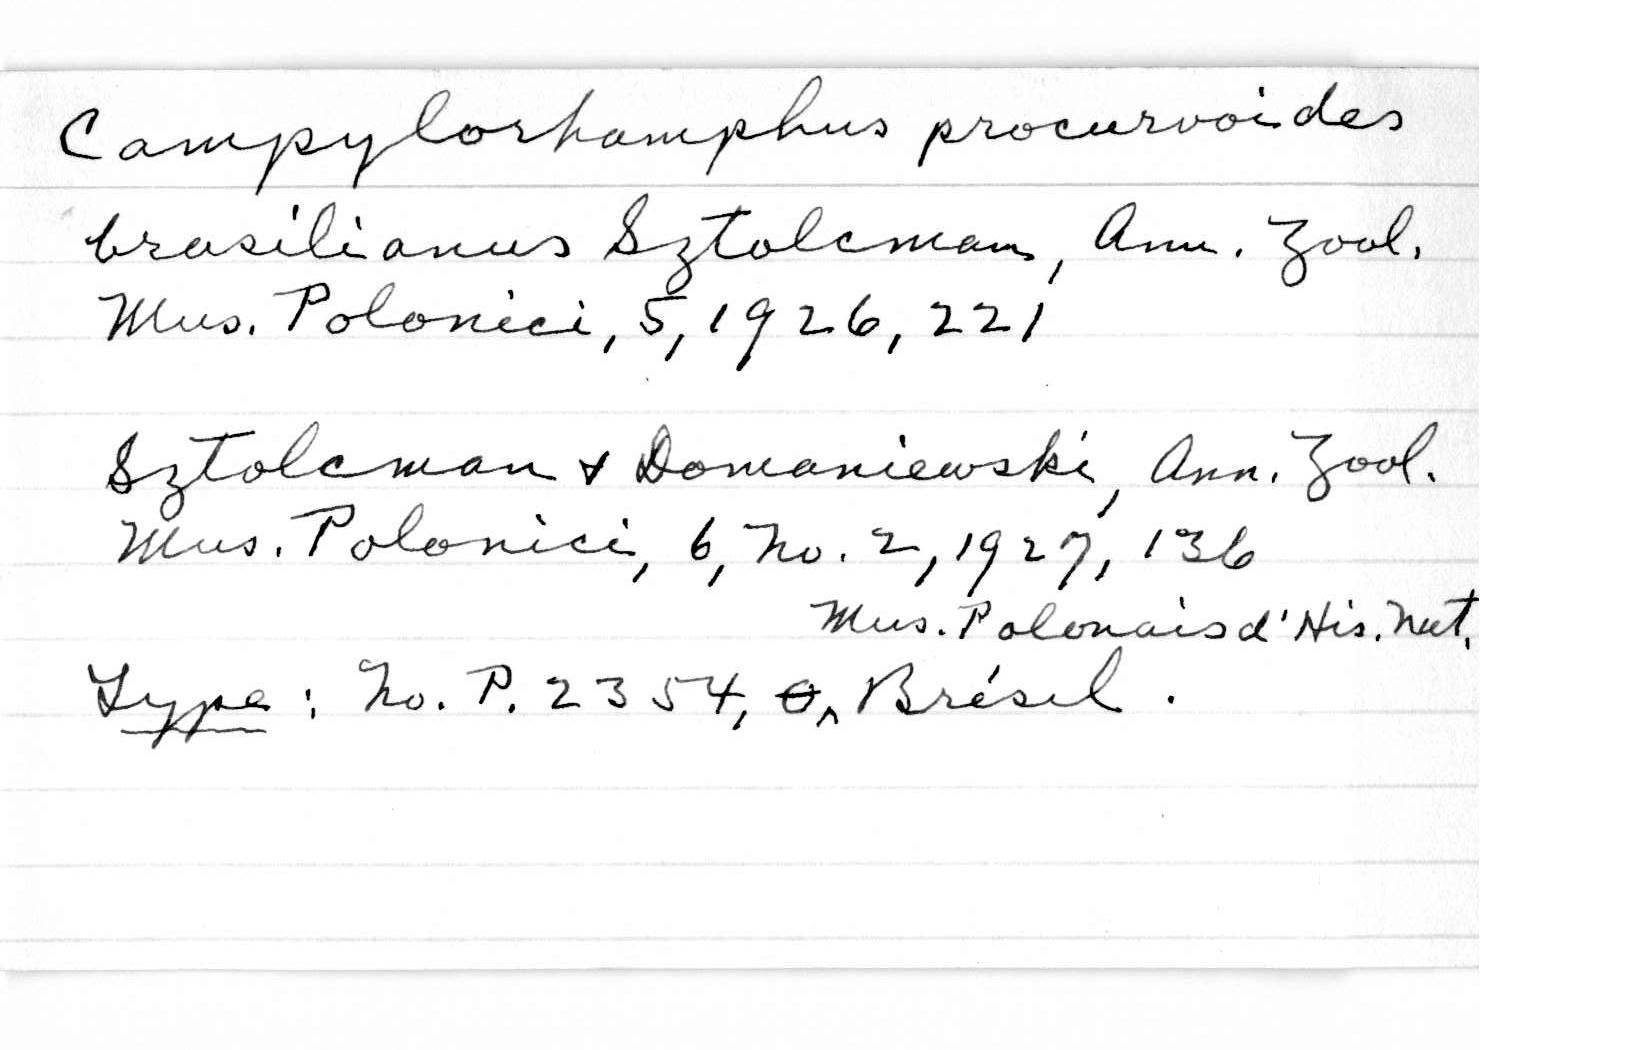 Campylorhamphus procurvoides
brasilianus Sztolcman, Ann. Zool.
Mus. Polonici, 5, 1926, 221
Sztolcman & Domaniewski, Ann. Zool.
Mus. Polonici, 6, No. 2, 1927, 136
Mus. Polonais d'His. Nat.
Type: No. P. 2354, Brésil.